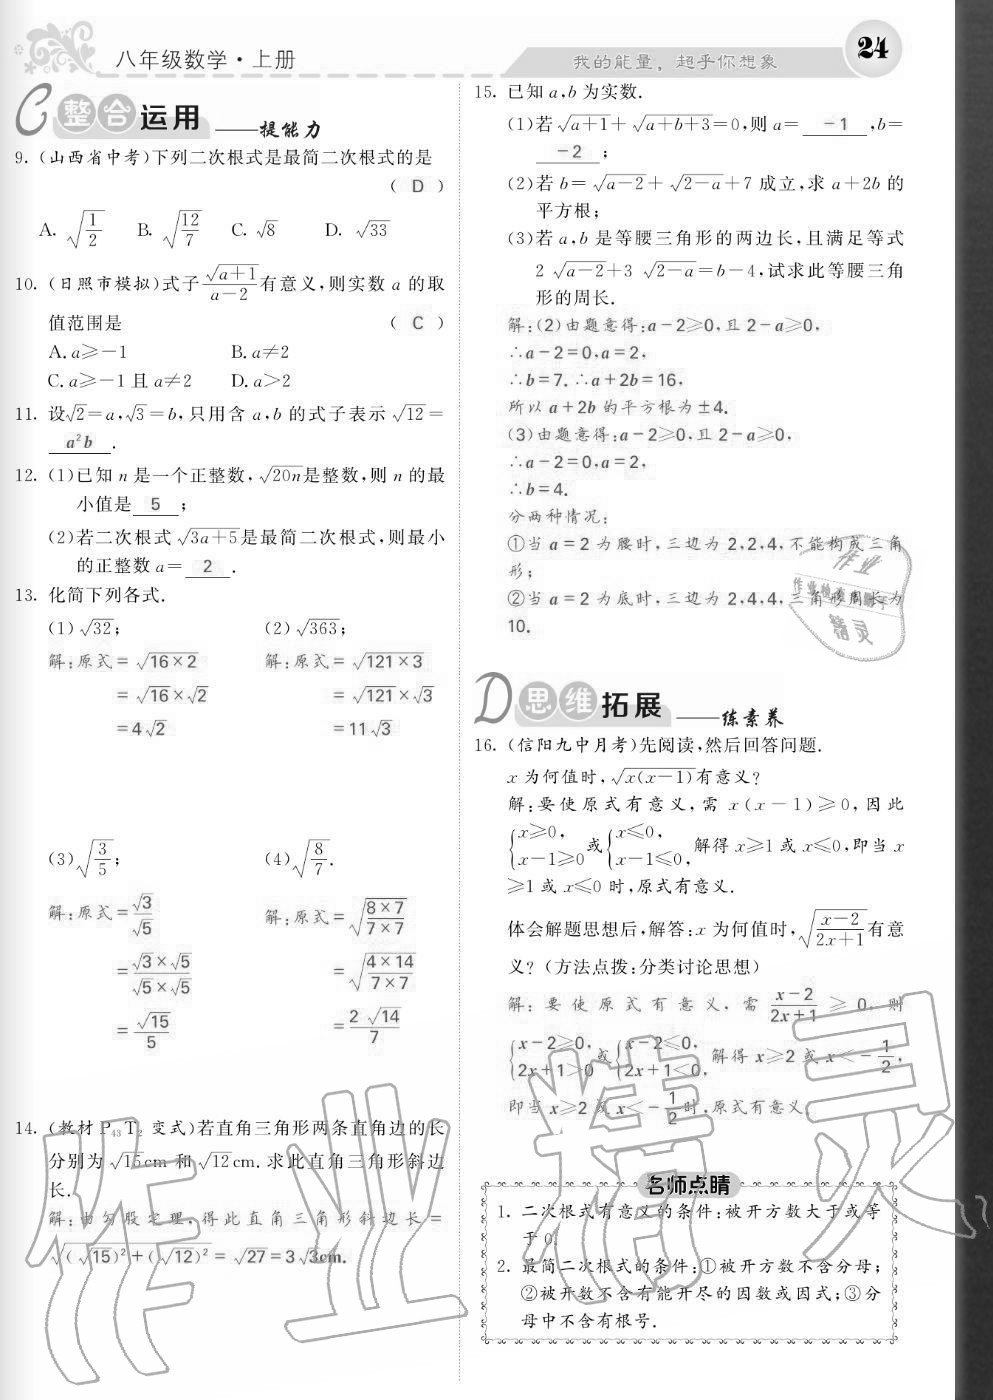 八年级数学·上册
我的能量，超乎你想象
24
C 整合运用 ——提能力
9. (山西省中考)下列二次根式是最简二次根式的是
( D )
A. √(1/2) B. √(12/7) C. √8 D. √33
10. (日照市模拟)式子 √(a+1)/(a-2) 有意义,则实数 a 的取
值范围是 ( C )
A. a≥-1 B. a≠2
C. a≥-1 且 a≠2 D. a>2
11. 设√2=a,√3=b,只用含 a,b 的式子表示 √12=
a²b .
12. (1)已知 n 是一个正整数,√(20n)是整数,则 n 的最
小值是 5 ;
(2)若二次根式 √(3a+5)是最简二次根式,则最小
的正整数 a= 2 .
13. 化简下列各式.
(1) √32; (2) √363;
解:原式= √(16×2) 解:原式= √(121×3)
= √16×√2 = √121×√3
=4√2 =11√3
(3) √(3/5); (4) √(8/7).
解:原式= √3/√5 解:原式= √((8×7)/(7×7))
= (√3×√5)/(√5×√5) = √((4×14)/(7×7))
= √15/5 = 2√14/7
14. (教材 P43 T2 变式)若直角三角形两条直角边的长
分别为 √15cm 和 √12cm. 求此直角三角形斜边
长.
解:由勾股定理,得此直角三角形斜边长=
√((√15)²+(√12)²)= √27=3√3cm.
15. 已知 a,b 为实数.
(1)若 √(a+1)+ √(a+b+3)=0,则 a= -1 ,b=
-2 ;
(2)若 b= √(a-2)+ √(2-a)+7 成立,求 a+2b 的
平方根;
(3)若 a,b 是等腰三角形的两边长,且满足等式
2 √(a-2)+3 √(2-a)=b-4,试求此等腰三角
形的周长.
解:(2)由题意得:a-2≥0,且 2-a≥0,
∴a-2=0,a=2,
∴b=7. ∴a+2b=16,
所以 a+2b 的平方根为±4.
(3)由题意得:a-2≥0,且 2-a≥0,
∴a-2=0,a=2,
∴b=4.
分两种情况:
①当 a=2 为腰时,三边为 2,2,4,不能构成三角
形;
②当 a=2 为底时,三边为 2,4,4,三角形周长为
10.
D 思维拓展 ——练素养
16. (信阳九中月考)先阅读,然后回答问题.
x 为何值时,√(x(x-1))有意义?
解:要使原式有意义,需 x(x-1)≥0,因此
{x≥0, x-1≥0 或{x≤0, x-1≤0, 解得 x≥1 或 x≤0,即当 x
≥1 或 x≤0 时,原式有意义.
体会解题思想后,解答:x 为何值时,√((x-2)/(2x+1))有意
义?(方法点拨:分类讨论思想)
解:要使原式有意义,需 (x-2)/(2x+1) ≥0,则
{x-2≥0, 2x+1>0 或{x-2≤0, 2x+1<0, 解得 x≥2 或 x<-1/2,
即当 x≥2 或 x<-1/2时,原式有意义.
名师点睛
1. 二次根式有意义的条件:被开方数大于或等
于 0.
2. 最简二次根式的条件:①被开方数不含分母;
②被开数不含有能开尽的因数或因式;③分
母中不含有根号.
作业精灵